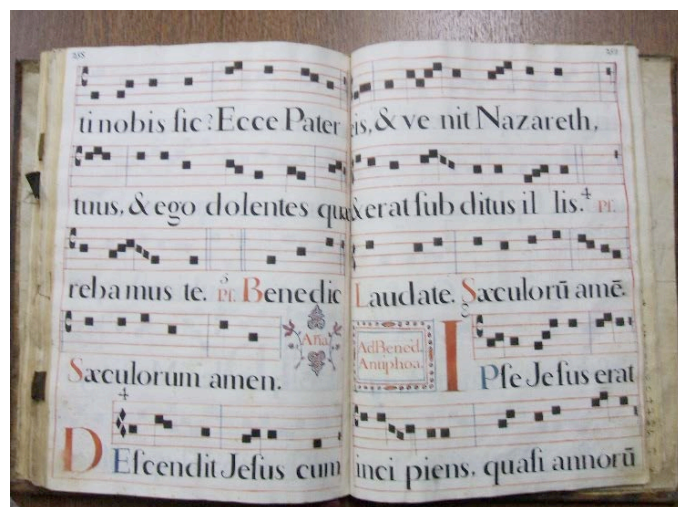 258
ti nobis sic? Ecce Pater
tuus, & ego dolentes quæ
rebamus te. 5 Ps. Benedic
Sæculorum amen. Aña
4
DEscendit Jesus cum
eis, & ve nit Nazareth,
& erat sub ditus il lis. 4 Ps.
Laudate. Sæculorū amē.
Ad Bened. Antiphoa.
8
IPse Jesus erat
inci piens, quasi annorū